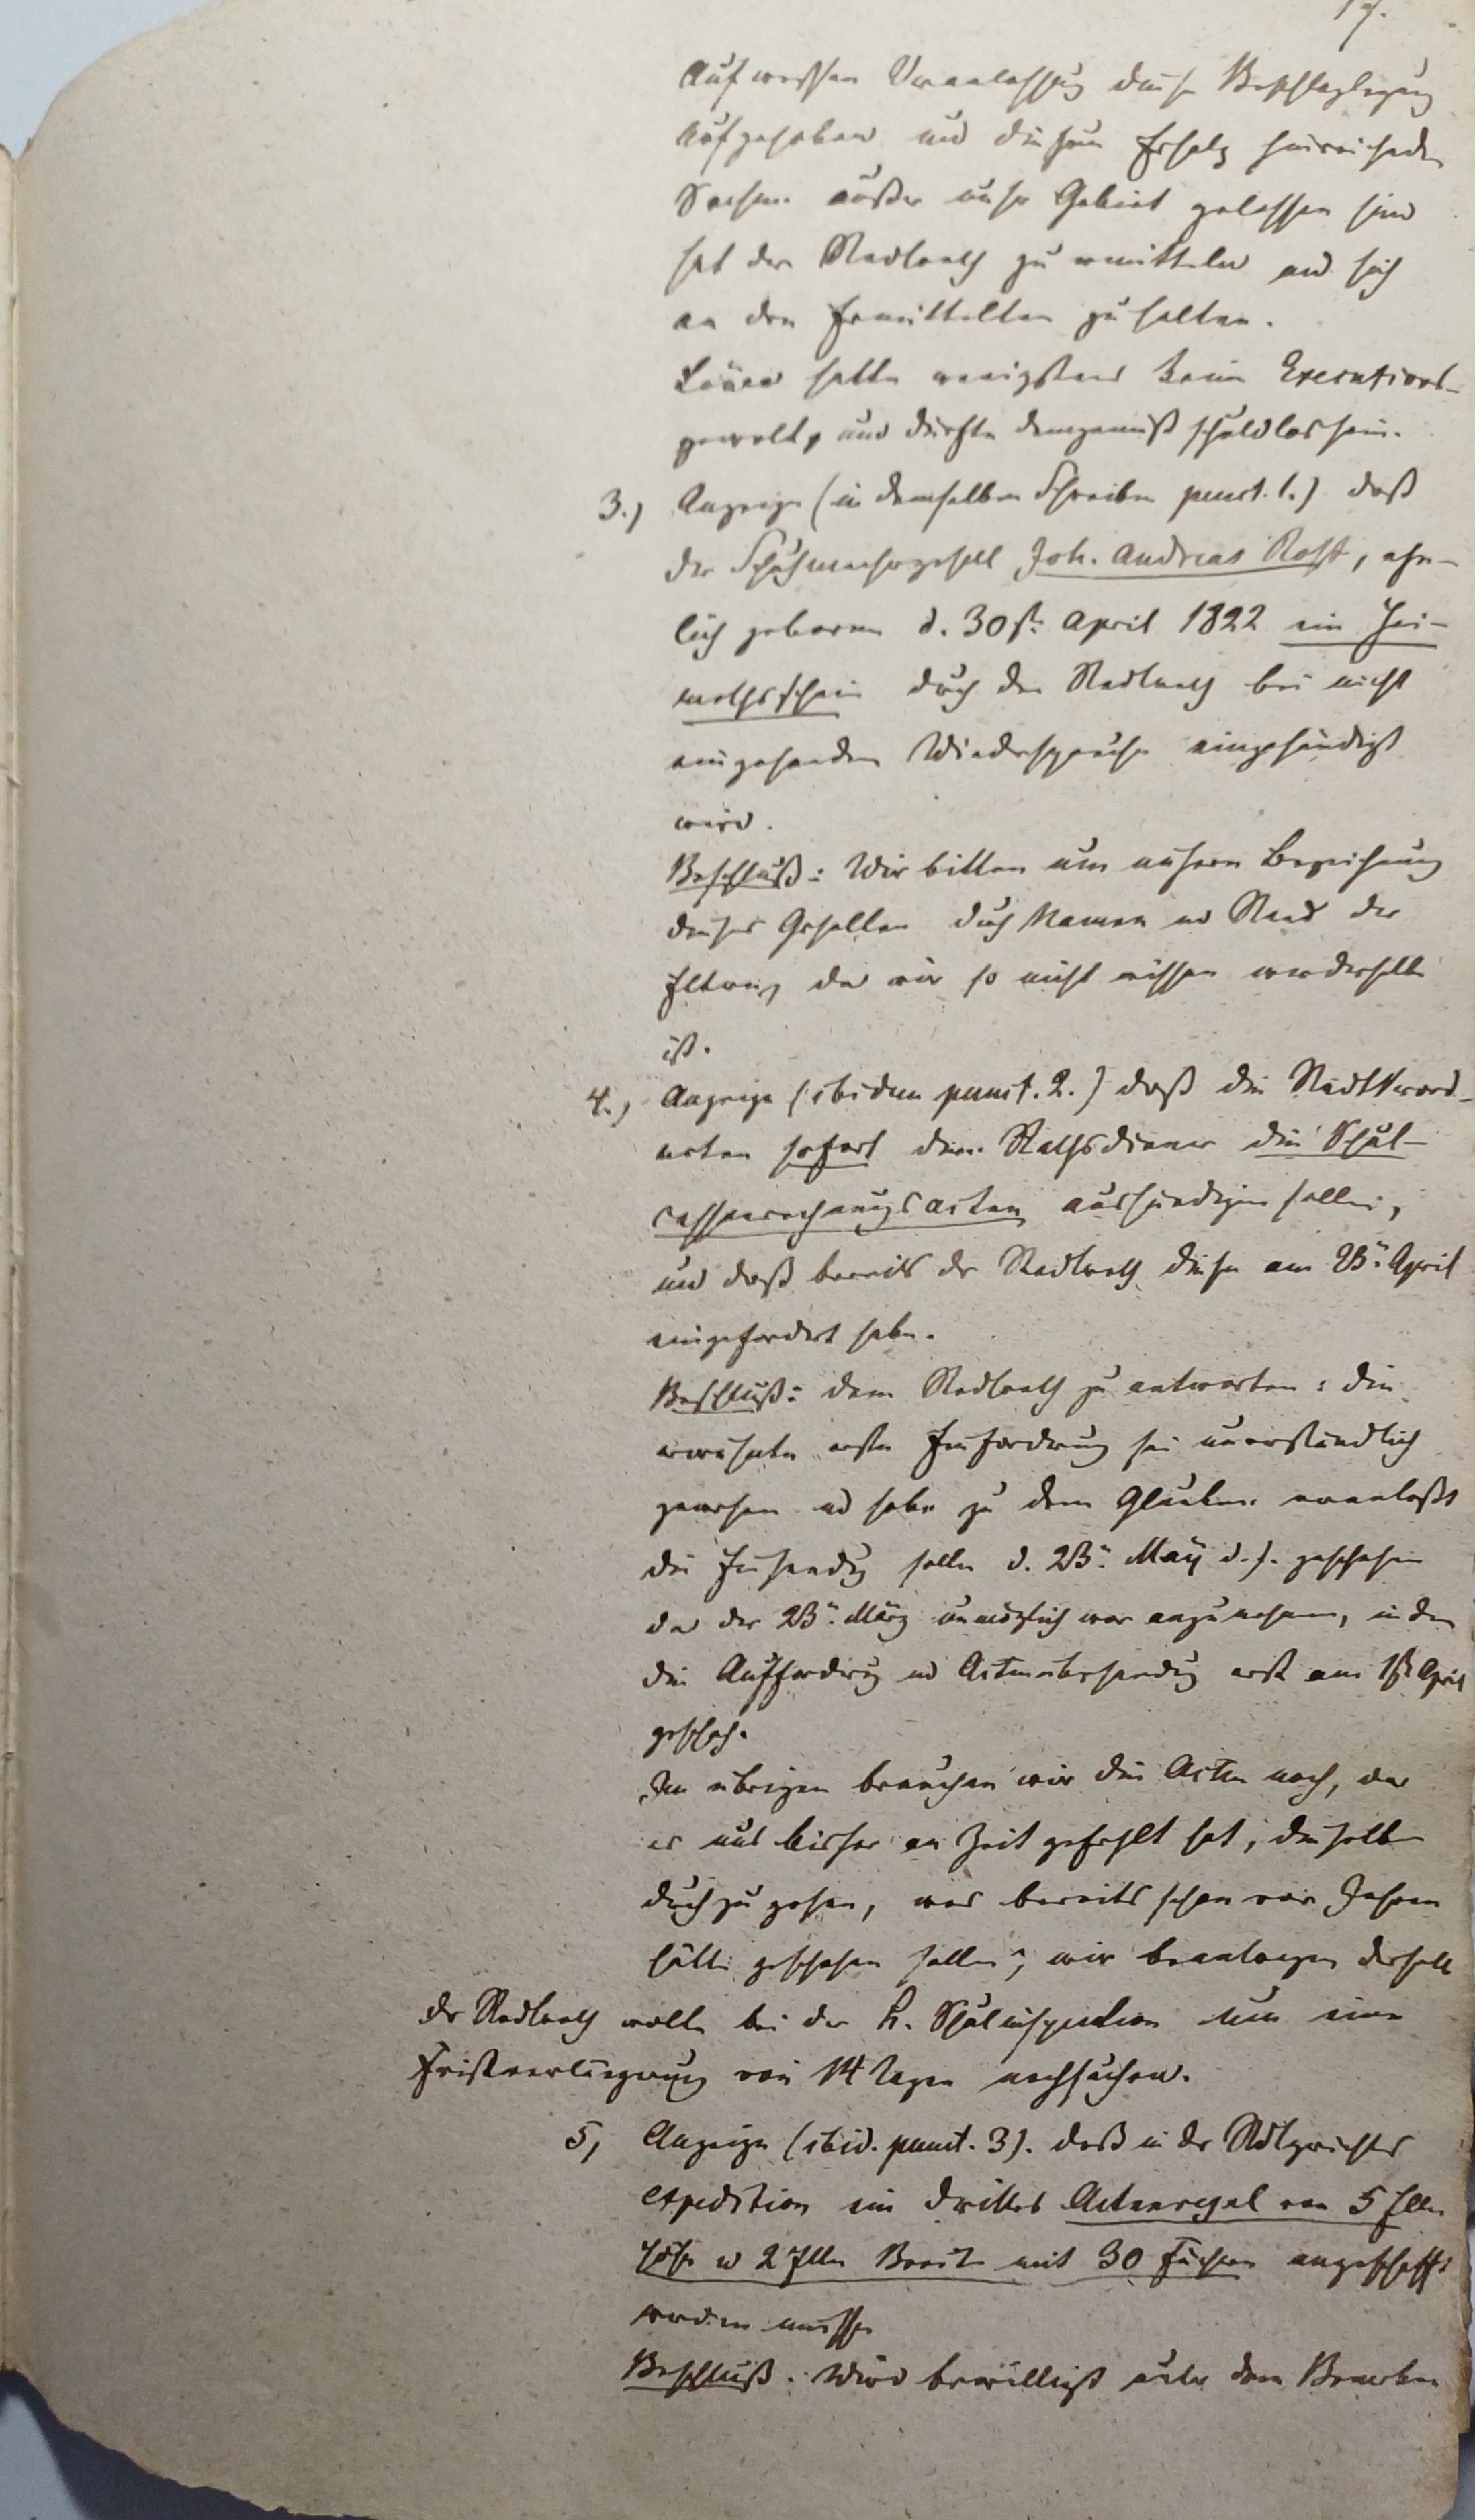 Auf wessen Veranlassung diese Beschlaglegung
aufgehoben und diesem Erfolg hinreichende
Sachen außer unser Gebiet gelassen sind
hat der Stadtrath zu ermitteln und sich
an den Ermittelten zu halten.
hatte wenigstens keine Executions-
gewalt, und dürfte demgemäß schuldlos sein.
3.) Anzeige (in demselben Schreiben punct. 1.) daß
der Schuhmachergesell Joh. Andreas Rost, ehe-
lich geboren d. 30st. April 1822 ein Hei-
mathsschein durch den Stadtrath bei nicht
eingehenden Wiederspruche eingehändigt
wird.
Beschluß: Wir bitten um nähere Bezeichnung
dieses Gesellen durch Namen und Stand der
Eltern, da wir so nicht wissen wer derselbe
ist.
4.) Anzeige (ibidem punct. 2.) daß die Stadtverord-
neten sofort dem Rathsdiener die Schul-
cassenrechnungsacten aushändigen sollen,
und daß bereits der Stadtrath diese am 23n. April
eingefordert habe.
Beschluß: dem Stadtrath zu antworten: die
erwähnte erste Einforderung sei unverständlich
gewesen und habe zu dem Glauben veranlaßt
die Einsendung solle d. 23n. May d. J. geschehen
da der 23n. März unmöglich war anzunehmen, indem
die Aufforderung und Actenübersendung erst am 1st. April
geschah.
Im übrigen brauchen wir die Acten noch, da
es uns bisher an Zeit gefehlt hat, dieselben
durchzugehen, was bereits schon vor Jahren
hätte geschehen sollen; wir beantragen deshalb
der Stadtrath wolle bei der h. Schulinspection um eine
Fristverlängerung von 14 Tagen nachsuchen.
5, Anzeige (ibid. punct. 3). daß in der Stadtgerichts
expedition ein drittes Actenregal von 5 Ellen
Höhe u 2 Ellen Breite mit 30 Fächern angeschafft
werden müsse
Beschluß. Wird bewilligt unter dem Bemerken